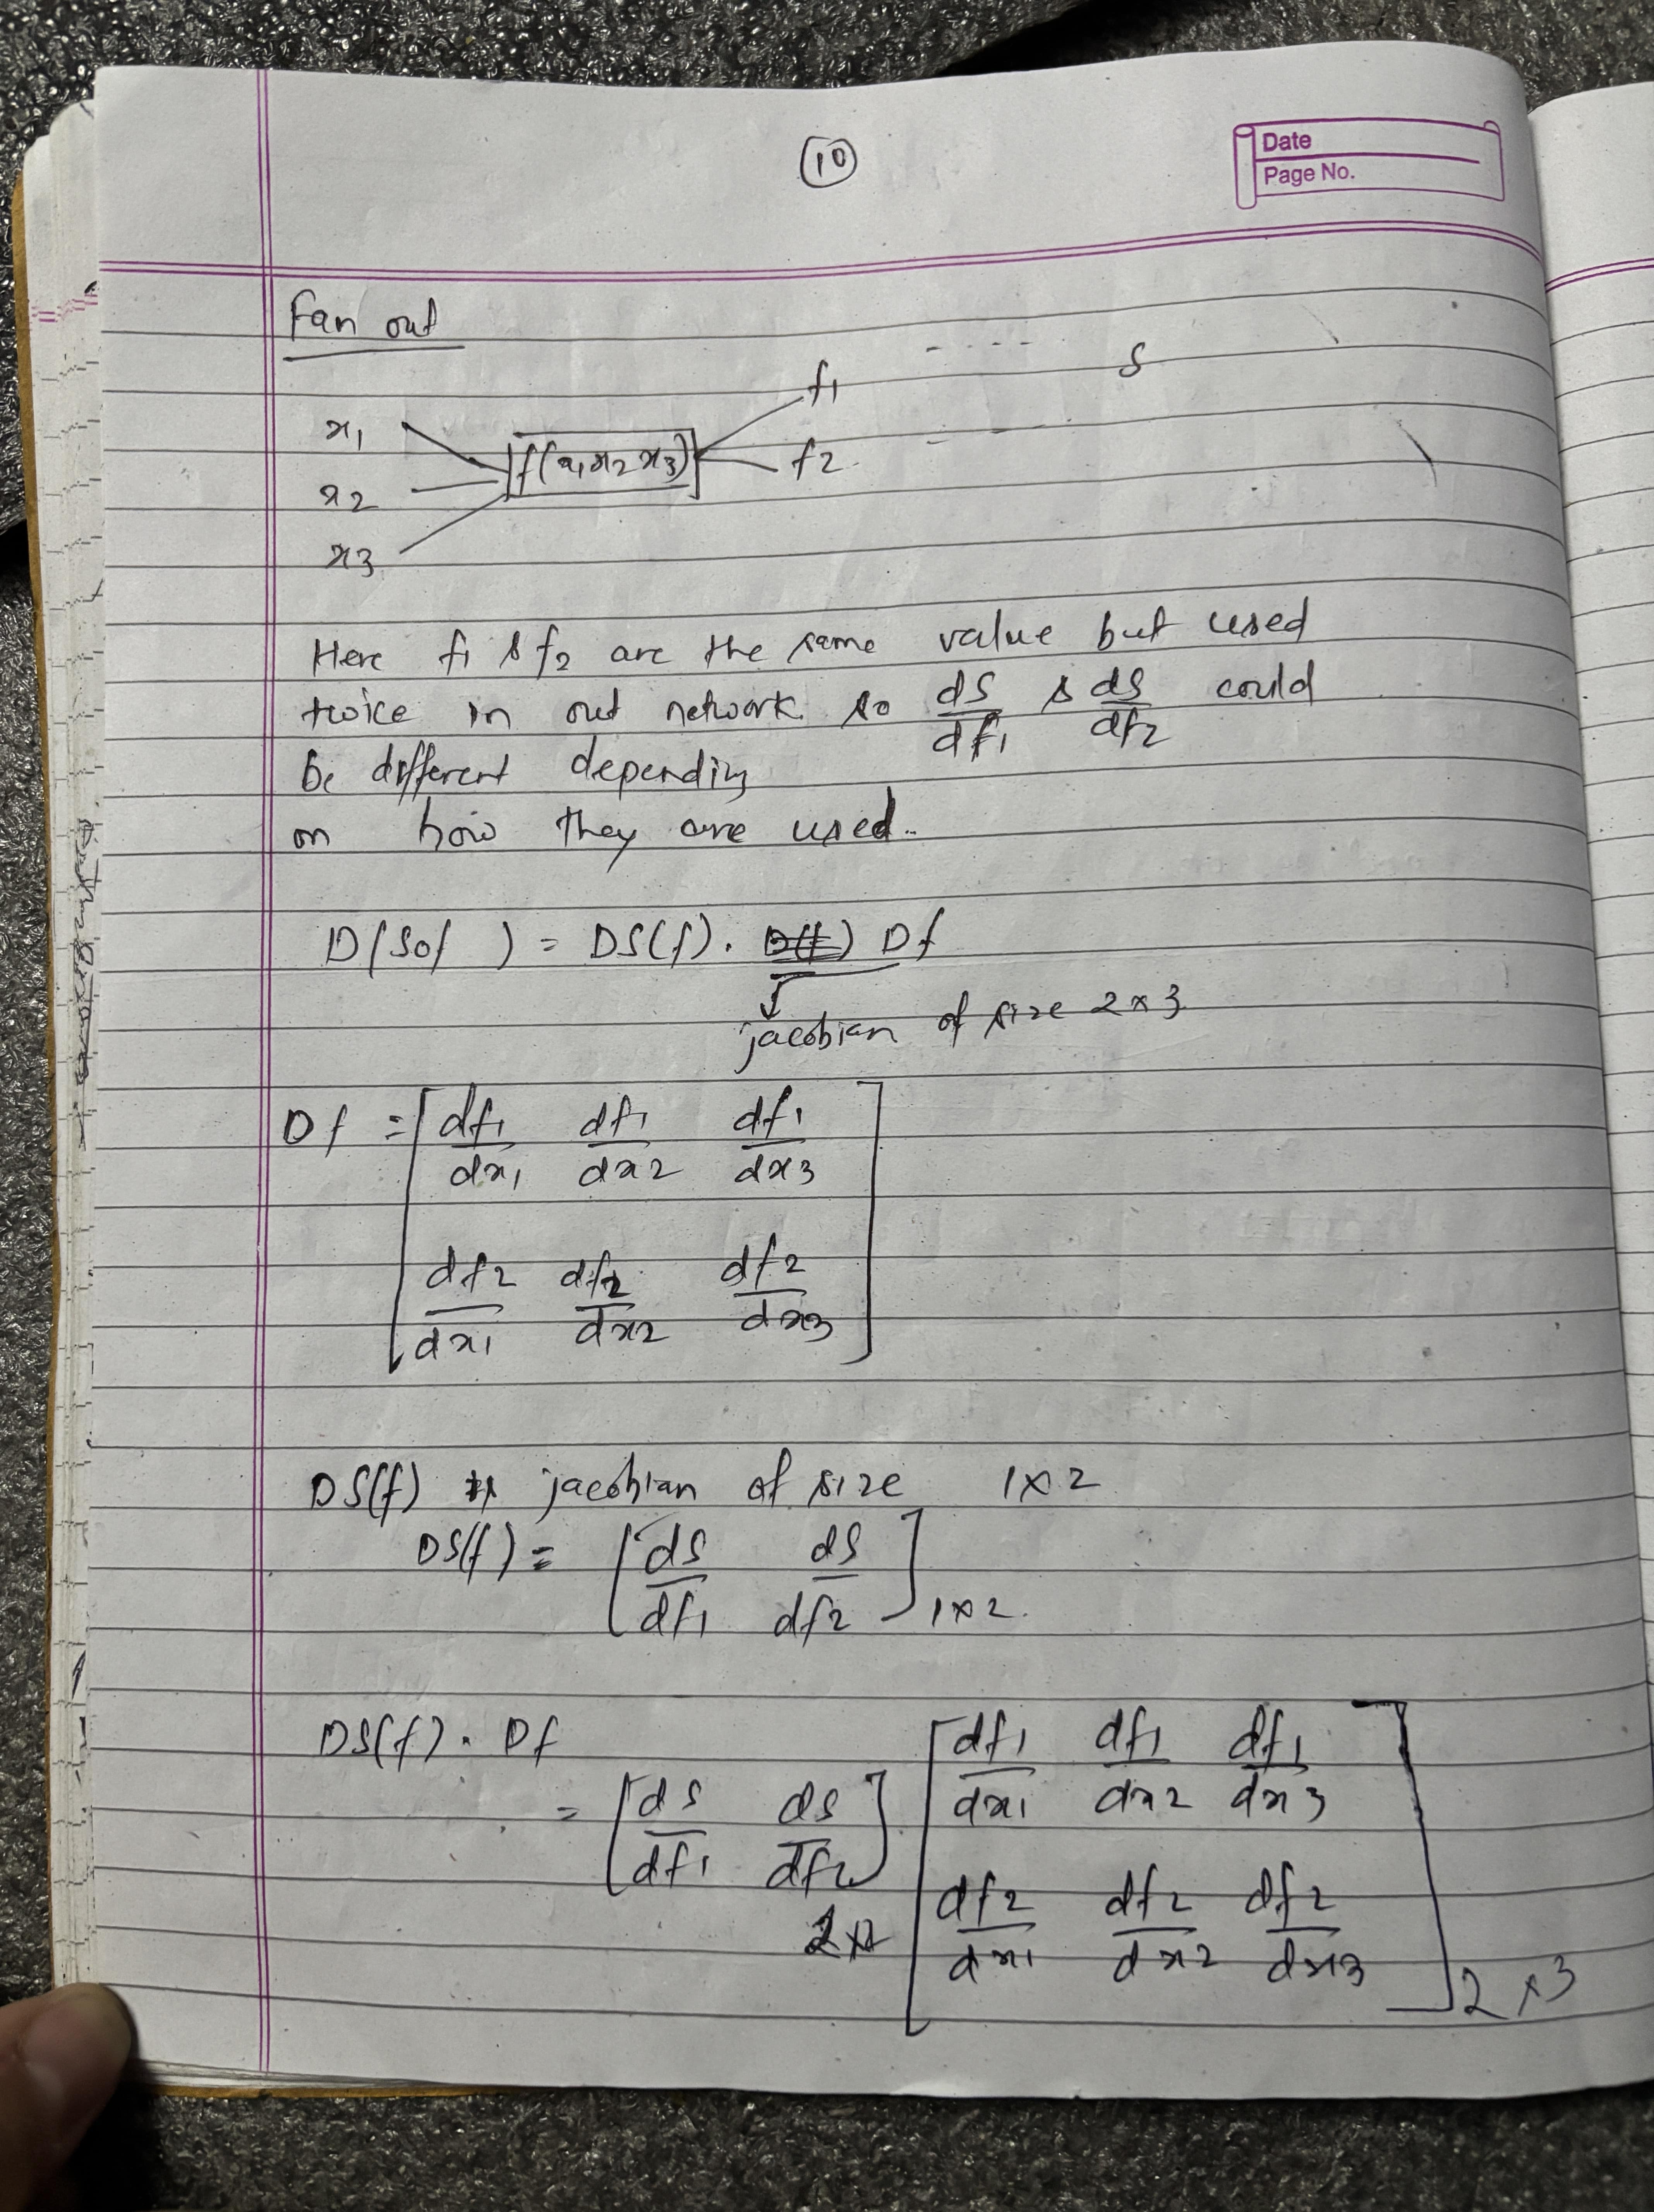 10
Date
Page No.
Fan out
f1 ----- S
x1
f(x1 x2 x3)
f2 -----
x2
x3
Here f1 & f2 are the same value but used
twice in out network so dS/df1 & dS/df2 could
be different depending
on how they are used.
D(Sof ) = DS(f). Df
jacobian of size 2×3
Df = [ df1/dx1 df1/dx2 df1/dx3
df2/dx1 df2/dx2 df2/dx3 ]
DS(f) is jacobian of size 1×2
DS(f) = [ dS/df1 dS/df2 ] 1×2.
DS(f). Df
= [ dS/df1 dS/df2 ] . [ df1/dx1 df1/dx2 df1/dx3
df2/dx1 df2/dx2 df2/dx3 ] 2×3